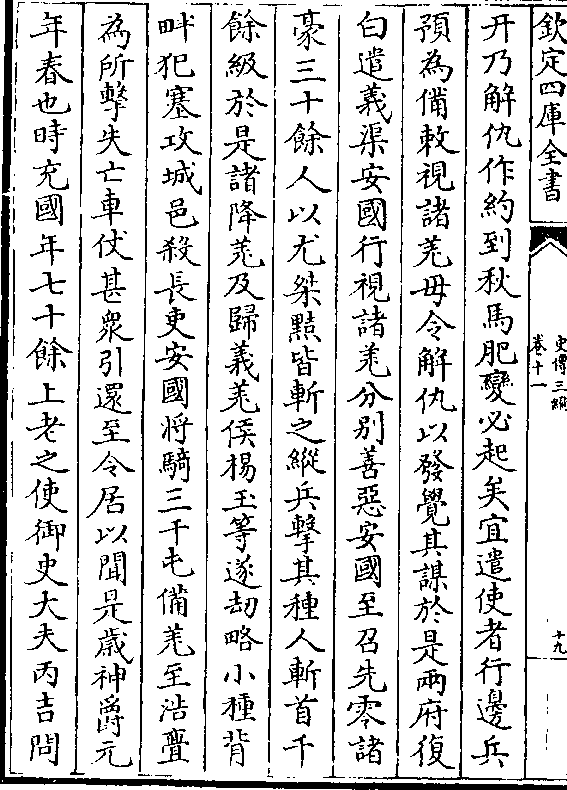 欽定四庫全書
史傳三編
卷十一
十九
幵乃解仇作約到秋馬肥變必起矣宜遣使者行邊兵
預為備敕視諸羌毋令解仇以發覺其謀於是兩府復
白遣義渠安國行視諸羌分别善惡安國至召先零諸
豪三十餘人以尤桀黠皆斬之縱兵擊其種人斬首千
餘級於是諸降羌及歸義羌侯楊玉等遂刼略小種背
畔犯塞攻城邑殺長吏安國将騎三千屯備羌至浩亹
為所擊失亡車仗甚衆引還至令居以聞是歲神爵元
年春也時充國年七十餘上老之使御史大夫丙吉問